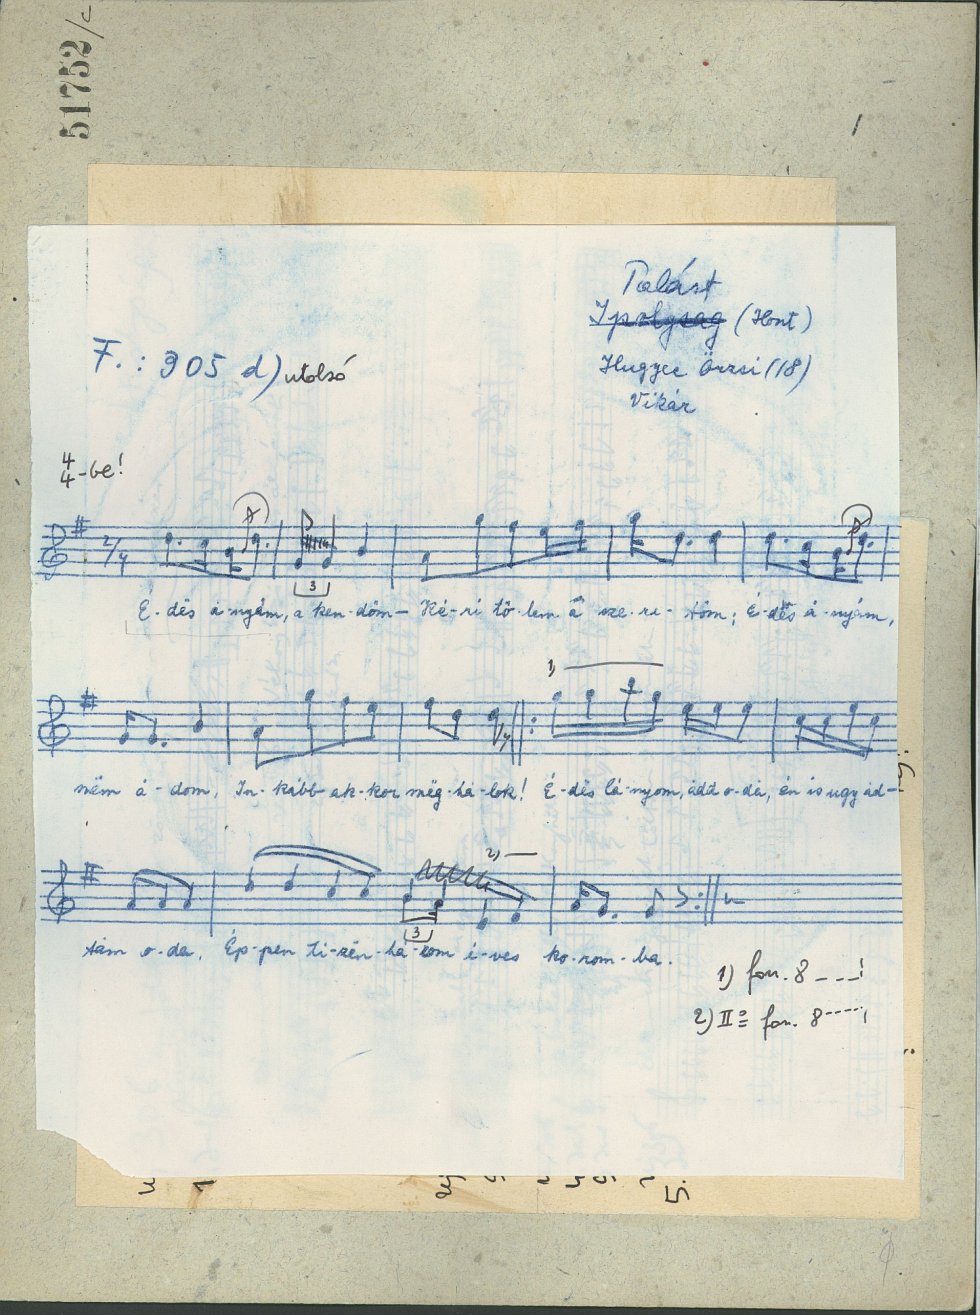 51752/c
Palást
Ipolyság (Hont)
F.: 905 d) utolsó
Örzsi (18)
Vikár
4/4-be!
2/4
3
É-dës á-nyám, a ken-dőm- Ké-ri tő-lem a sze-re-tőm; É-dës á-nyám,
1)
nëm á-dom, In-kább ak-kor mëg-ha-lok! É-dës lá-nyom, add o-da, én is ugy ad-
2)
3
tam o-da, Ép-pen ti-zën-há-rom é-ves ko-rom-ba.
1) fon. 8
2) II fon. 8
5.